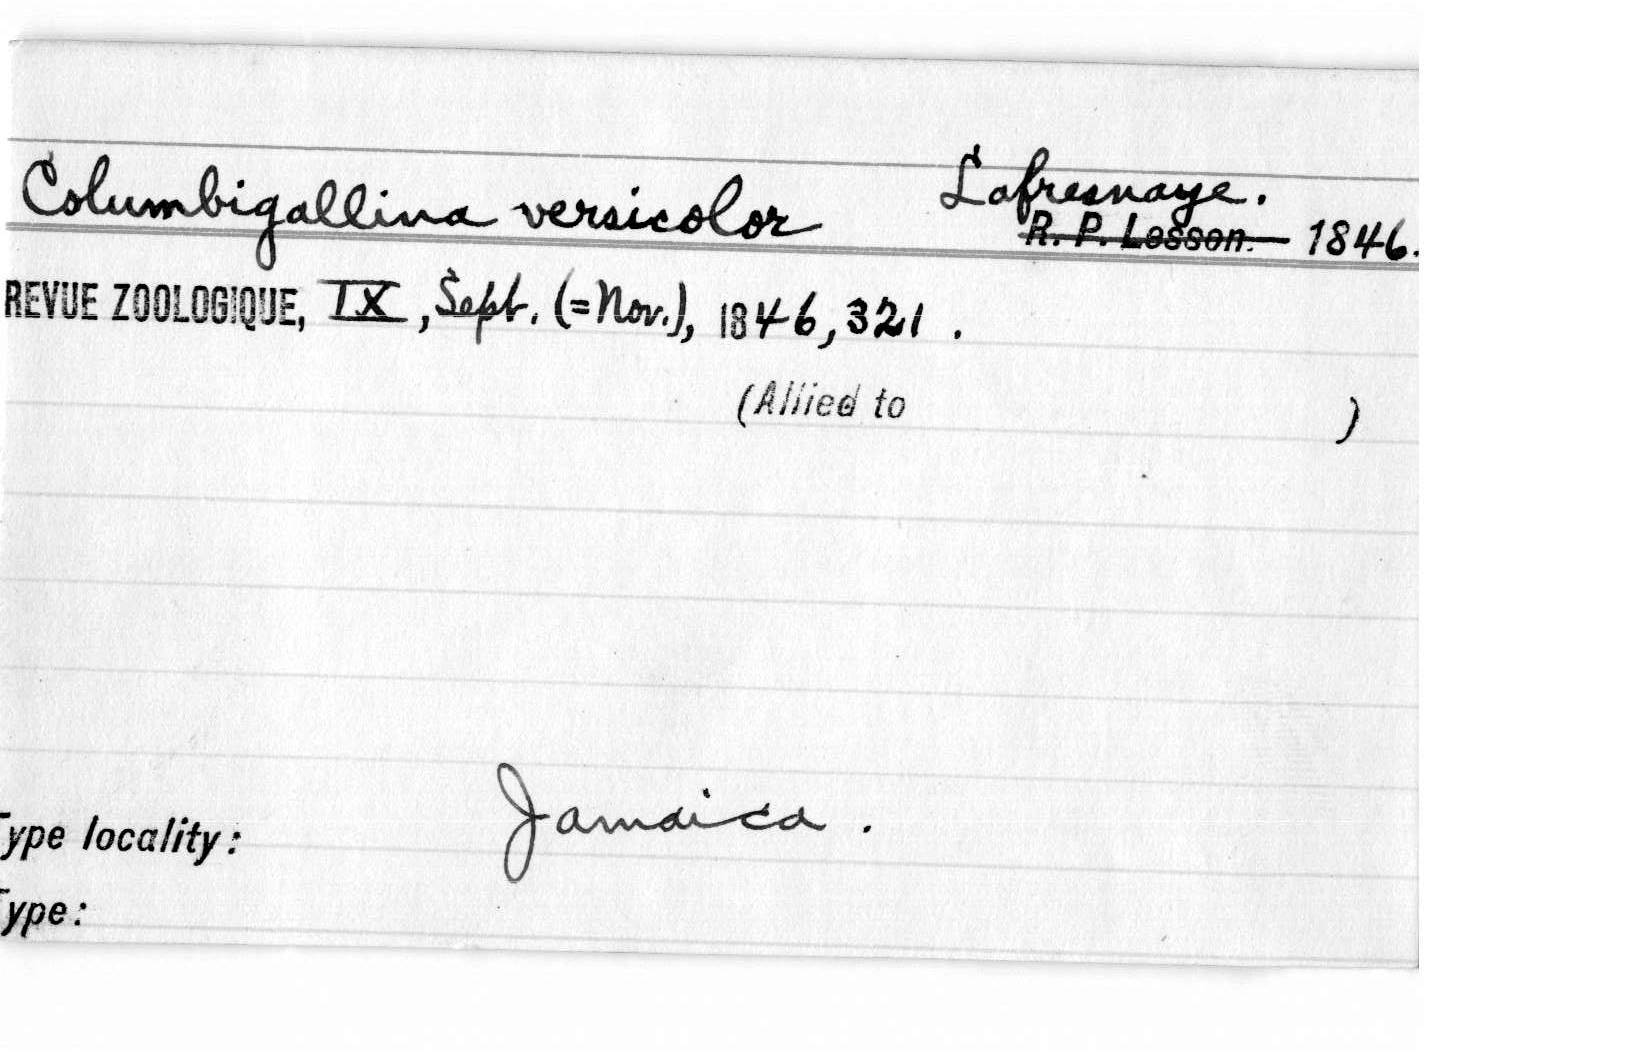 Columbigallina versicolor Lafresnaye.
R. P. Lesson. 1846.
REVUE ZOOLOGIQUE, IX, Sept. (=Nov.), 1846, 321.
(Allied to )
Type locality: Jamaica.
Type: